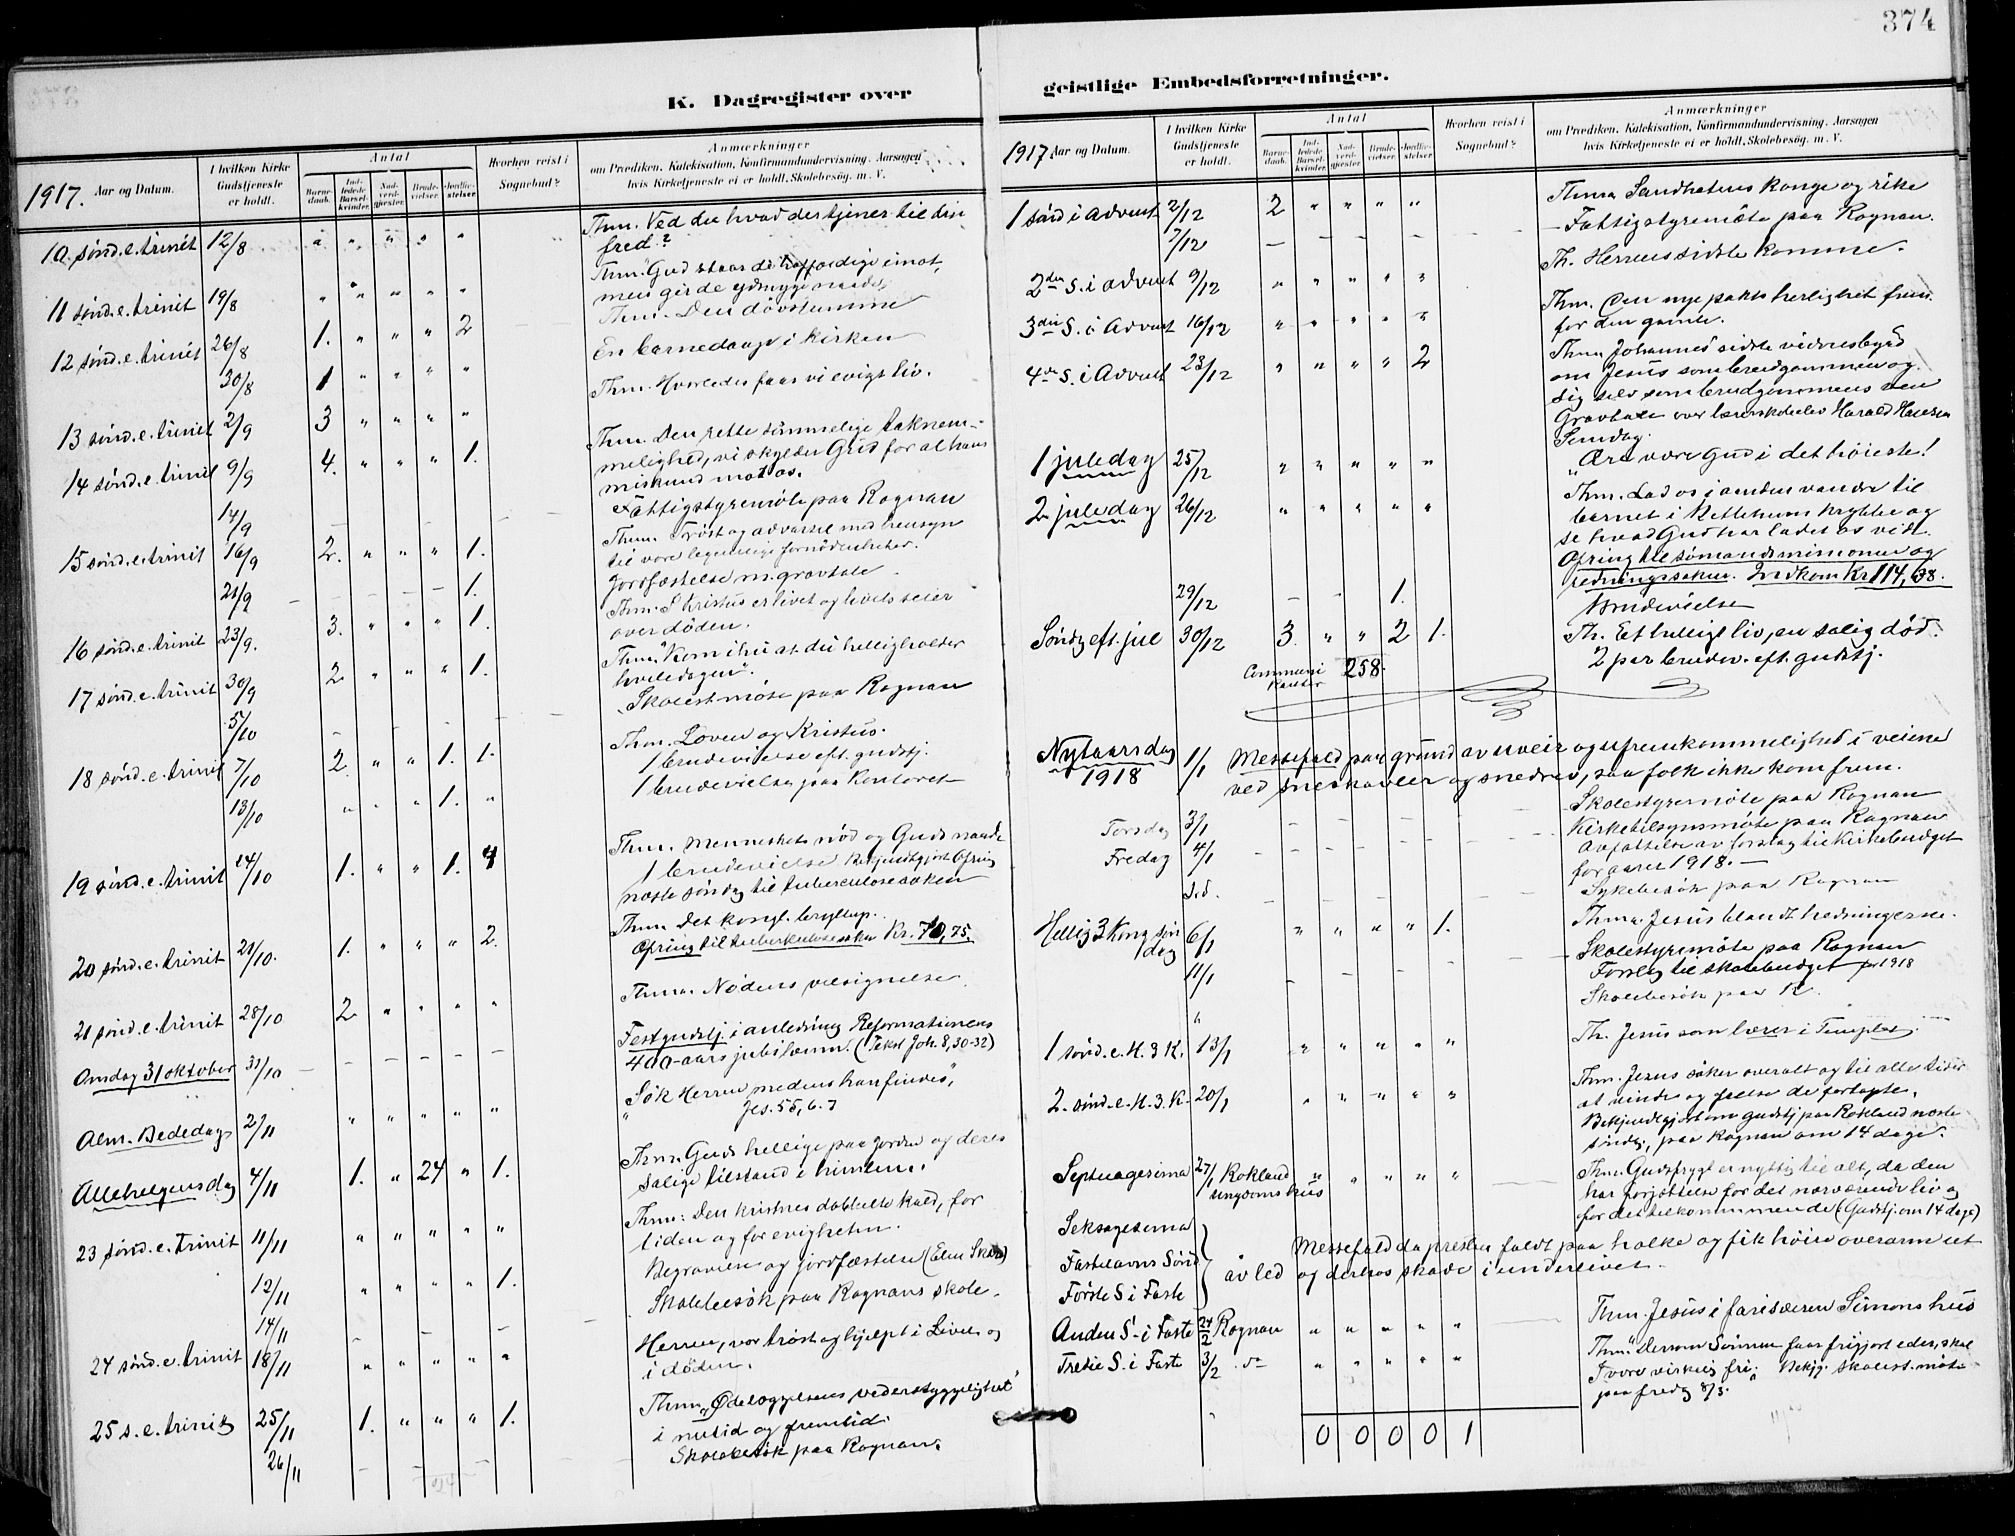 374
K. Dagregister over
geistlige Embedsforretninger.
1917. Aar og Datum.
I hvilken Kirke Gudstjeneste er holdt.
Antal
Barnedaab.
Indledede Barselkvinder.
Nadverdgjester.
Brudevielser.
Jordfæstelser.
Hvorhen reist i Sognebud?
Anmærkninger
om Prædiken, Katekisation, Konfirmandundervisning, Aarsagen
hvis Kirketjeneste ei er holdt, Skolebesøg, m. V.
10. sønd. e. trinit 12/8 " " " " " Thm. Ved du hvad der tjener til din
fred?
11 sønd. e. trinit 19/8 " " " " " Thm. "Gud staar de hoffærdige imot,
men gir de ydmyge naade"
12 sønd. e. trinit 26/8 1. " " " 2 Thm. Den døvstumme
30/8 1 " " " " En barnedaap i kirken
13 sønd. e. trinit 2/9 3 " " " " Thm. Hvorledes faar vi evigt liv.
14 sønd. e. trinit 9/9 4. " " " 1. Thm. Den rette sømmelige taknem-
melighed, vi skylder Gud for al hans
miskund mot os.
14/9 Fattigstyremøte paa Rognan
15 sønd. e. trinit 16/9 2. " " " 1. Thm. Trøst og advarsel med hensyn
til vore legemlige fornødenheter.
21/9 – – – – 1. Jordfæstelse m. gravtale
16 sønd. e. trinit 23/9. 3. " " " 1. Thm. Kristus er livet og livets seier
over døden.
17 sønd. e. trinit 30/9 2. " " " 1. Thm. "Kom ihu at du helligholder
hviledagen".
5/10 – Skolestmøte paa Rognan
18 sønd. e. trinit 7/10 2. " " 1. 1. Thm. Loven og Kristus.
1 brudevielse eft. gudstj.
13/10 " " " 1. " 1 brudevielse paa kontoret
19 sønd. e. trinit 14/10 1. " " 1. 4 Thm. Menneskets nød og Guds naade
1 brudevielse Bekjendtgjort Ofring
næste søndag til tuberculosesaken
20 sønd. e. trinit 21/10. 1. " " " 2. Thm. Det kongl. bryllup.
Ofring til tuberkulosesaken Kr. 70,75.
21 sønd. e. trinit 28/10 2 " " " " Thma. Nødens velsignelse
Onsdag 31 oktober 31/10 – – – – – Festgudstj. i anledning Reformationens
400-aars jubilæum. (Tekst Joh. 8, 30-32)
Alm. Bededag 2/11 " " " " " "Søk Herren medens han findes",
Jes. 55, 6-7
Allehelgensdag 4/11 1. " 24 " 1. Thm. Guds hellige paa jorden og deres
salige tilstand i himlen.
23 sønd. e. trinit 11/11 " " " " " Thm: Den kristnes dobbelte kald, for
tiden og for evigheten.
12/11 " " " " 1. Begravelse og jordfæstelse
14/11 – – – – – Skolebesøk paa Rognans skole.
24 sønd. e. trinit 18/11 " " " " " Herren, vor trøst og hjælp i Livet og
i døden.
25 s. e. trinit 25/11 1. " " " 1. Thm. "Ødelæggelsens vederstyggelighet"
i nutid og fremtid.
26/11 – – – – – Skolebesøk paa Rognan.
1917 Aar og Datum.
I hvilken Kirke Gudstjeneste er holdt.
Antal
Barnedaab.
Indledede Barselkvinder.
Nadverdgjester.
Brudevielser.
Jordfæstelser.
Hvorhen reist i Sognebud?
Anmærkninger
om Prædiken, Katekisation, Konfirmandundervisning, Aarsagen
hvis Kirketjeneste ei er holdt, Skolebesøg, m. V.
1 sønd i Advent 2/12 2 " " " " Thma Sandhetens konge og rike
7/12 – – – – – Fattigstyremøte paa Rognan.
2den S. i Advent 9/12 " " " " " Th. Herrens sidste komme.
3die S. i Advent 16/12 " " " " " Thm. Den nye pakts herlighet frem-
for den gamle.
4de S. i Advent 23/12 " " " " 2 Thm. Johannes' sidste vidnesbyrd
om Jesus som brudgommen og
sig selv som brudgommens ven
Gravtale over Harald Hansen
1 juledag 25/12 " " " " " "Ære være Gud i det høieste!
2 juledag 26/12 " " " " " Thm. Lad os i anden vandre til
barnet i Betlehems krybbe og
se hvad Gud har ladet os vidt.
Ofring til sømandsmissionen og
redningssaken. Indkom Kr 114,68.
29/12 – – 1. Brudevielse
Søndg eft. jul 30/12 3 " " 2 1. Th. Et helligt liv, en salig død.
2 par brudev. eft. gudstj.
Communikanter 258.
Nytaarsdag 1918 1/1 Messefald paa grund av uveir og ufremkommelighed i veiene
ved sneskavler og snedrev, saa folk ikke kom frem.
Torsdag 3/1 – – – – – Skolestyremøte paa Rognan
Fredag 4/1 – – – – – Kirketilsynsmøte paa Rognan
Avfattelse av forslag til kirkebudget
for aaret 1918. –
s.d. Sykebesøk paa Rognan
Hellig 3 Kong. søndag 6/1 " " " " 1. Thma. Jesus blandt hedningerne.
11/1 – – – – – Skolestyremøte paa Rognan
Forslag til skolebudget for 1918
" Skolebesøk paa R.
1 sønd. e. H. 3 K. 13/1 " " " " " Th. Jesus som lærer i Templet.
2. sønd. e. H. 3. K. 20/1 " " " " " Thm. Jesus søker overalt og til alle tider
at vinde og frelse de fortapte.
Bekjendtgjort om gudstj paa Rokland næste
søndag, paa Rognan om 14 dage.
Septuagesima 27/1 Rokland ungdoms hus " " " " " Thm. Gudsfrygt er nyttig til alt, da den
har forjættelse for det nærværende liv og
for det tilkommende (Gudstj. om 14 dage)
Seksagesima
Fastelavns Sønd
Første S i Faste
Messefald da presten faldt paa holke og fik høire overarm ut
av led og derhos skade i underlivet.
Anden S. i Faste 24/2 Rognan " " " " " Thm. Jesus i fariseeren Simons hus
Tredie S. i Faste 3/2 do " " " " " Thm: Dersom Sønnen faar frigjort eder, skal
I være virkelig fri. Bekj. skolest. møte
paa fredg 8/3.
0 0 0 0 1